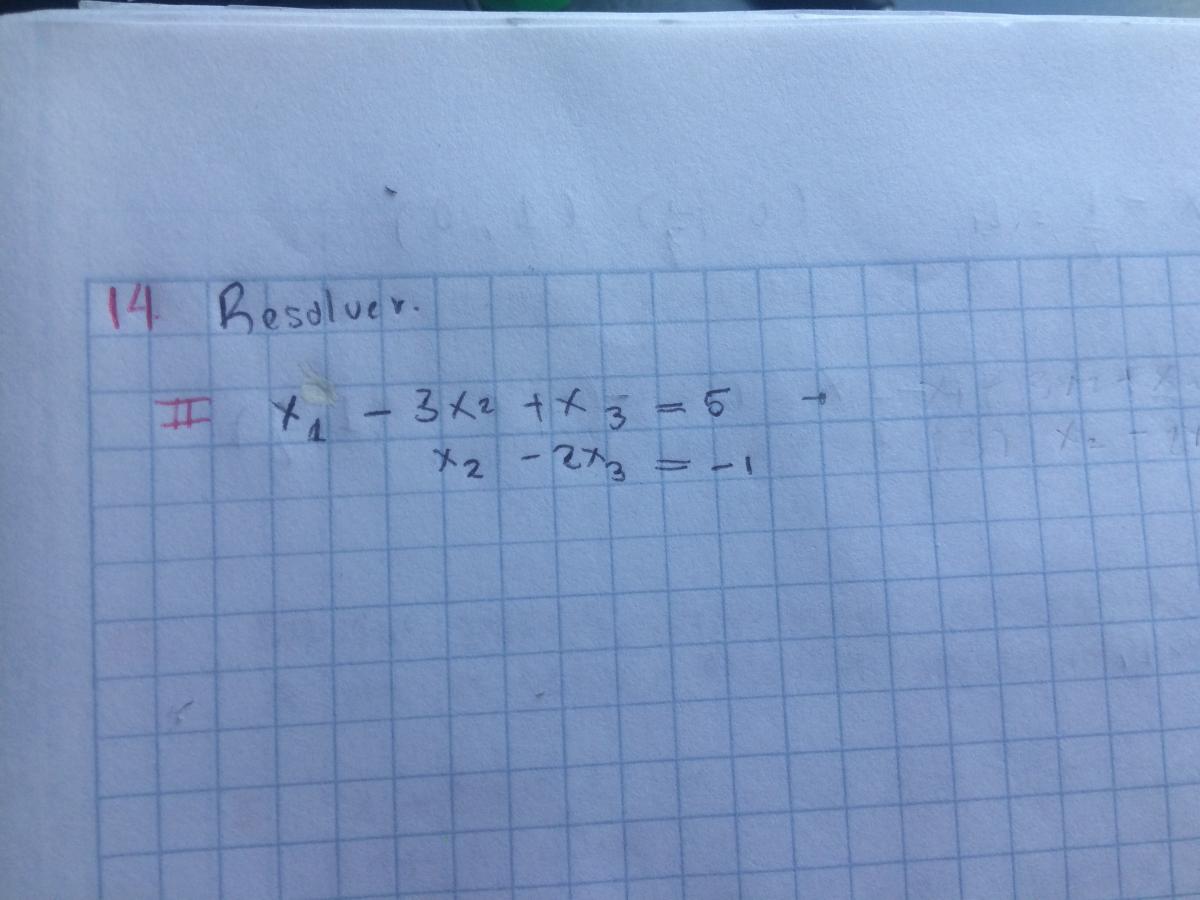 14. Resolver.
II x₁ - 3x₂ + x₃ = 5
x₂ - 2x₃ = -1